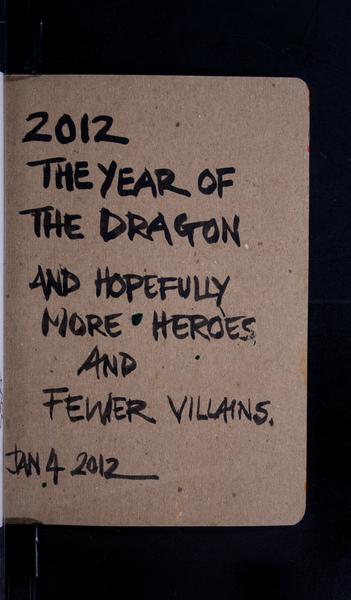 2012
THE YEAR OF
THE DRAGON
AND HOPEFULLY
MORE HEROES
AND
FEWER VILLAINS.
JAN 4 2012